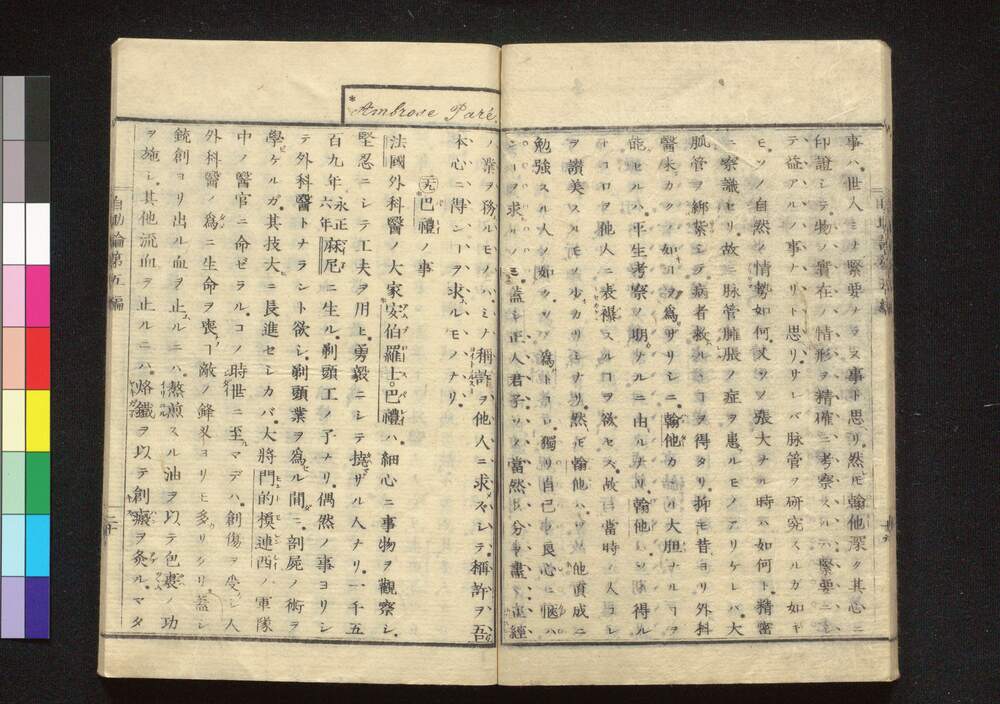 事ハ。世人ミナ緊要ナラヌ事ト思ヘリ。然レ𪜈翰他深ク其心ニ
印證シテ。物ノ實在ノ情形ヲ精確ニ考察スルハ。緊要ニシ
テ益アルノ事ナリト思ヘリ。サレバ脉管ヲ研究スルガ如キ
モ。ソノ自然ノ情勢如何。又ソノ張大ナル時ハ如何ト。精密
ニ察識セリ。故ニ脉管腫脹ノ症ヲ患ルモノアリケレバ。大
脈管ヲ綁紮シテ。病者救ルコヲ得タリ。抑モ昔ヨリ外科
醫未ダカクノ如キコヲ爲サリシニ。翰他カヽル大胆ナルコヲ
能セルハ。平生考察ノ期ナルニ由ルナリ。翰他ソノ得ル
トコロヲ他人ニ表襮スルコヲ欲セズ。故ニ當時ノ人コレ
ヲ讃美スルモノ少カリシナリ。然レ𪜈翰他ハ。ソノ他質成ニ
勉強スル人ノ如ク。ソノ爲トコロ。獨リ自己ノ良心ニ愜ハ
ンコヲ求ルノミ。蓋シ正人君子ソノ當然ノ分ヲ盡シ。正經
ノ業ヲ務ルモノハ。ミナ稱許ヲ他人ニ求ズシテ。稱許ヲ吾
本心ニ得ンコヲ求ルモノナリ。
*Ambrose Paré.
巴禮ノ事
法國外科醫ノ大家安伯羅士。巴禮ハ。細心ニ事物ヲ觀察シ。
堅忍ニシテ工夫ヲ用ヒ。勇毅ニシテ撓ザル人ナリ。一千五
百九年永正六年麻尼ニ生ル。剃頭工ノ子ナリ。偶然ノ事ヨリシ
テ外科醫トナラント欲シ。剃頭業ヲ爲ル間ニ。剖屍ノ術ヲ
學ケルガ。其技大ニ長進セシカバ。大將門的模連西ノ軍隊
中ノ醫官ニ命ゼラル。コノ時世ニ至マデハ。創傷ヲ受シ人
外科醫ノ爲ニ生命ヲ喪コ。敵ノ鋒刄ヨリモ多リシナリ。蓋シ
銃創ヨリ出ル血ヲ止ルニハ。熬煎スル油ヲ以テ色裹ノ功
ヲ施シ。其他流血ヲ止ルニハ。烙鐵ヲ以テ創癥ヲ灸ル。マタ
自助論第五編
二十